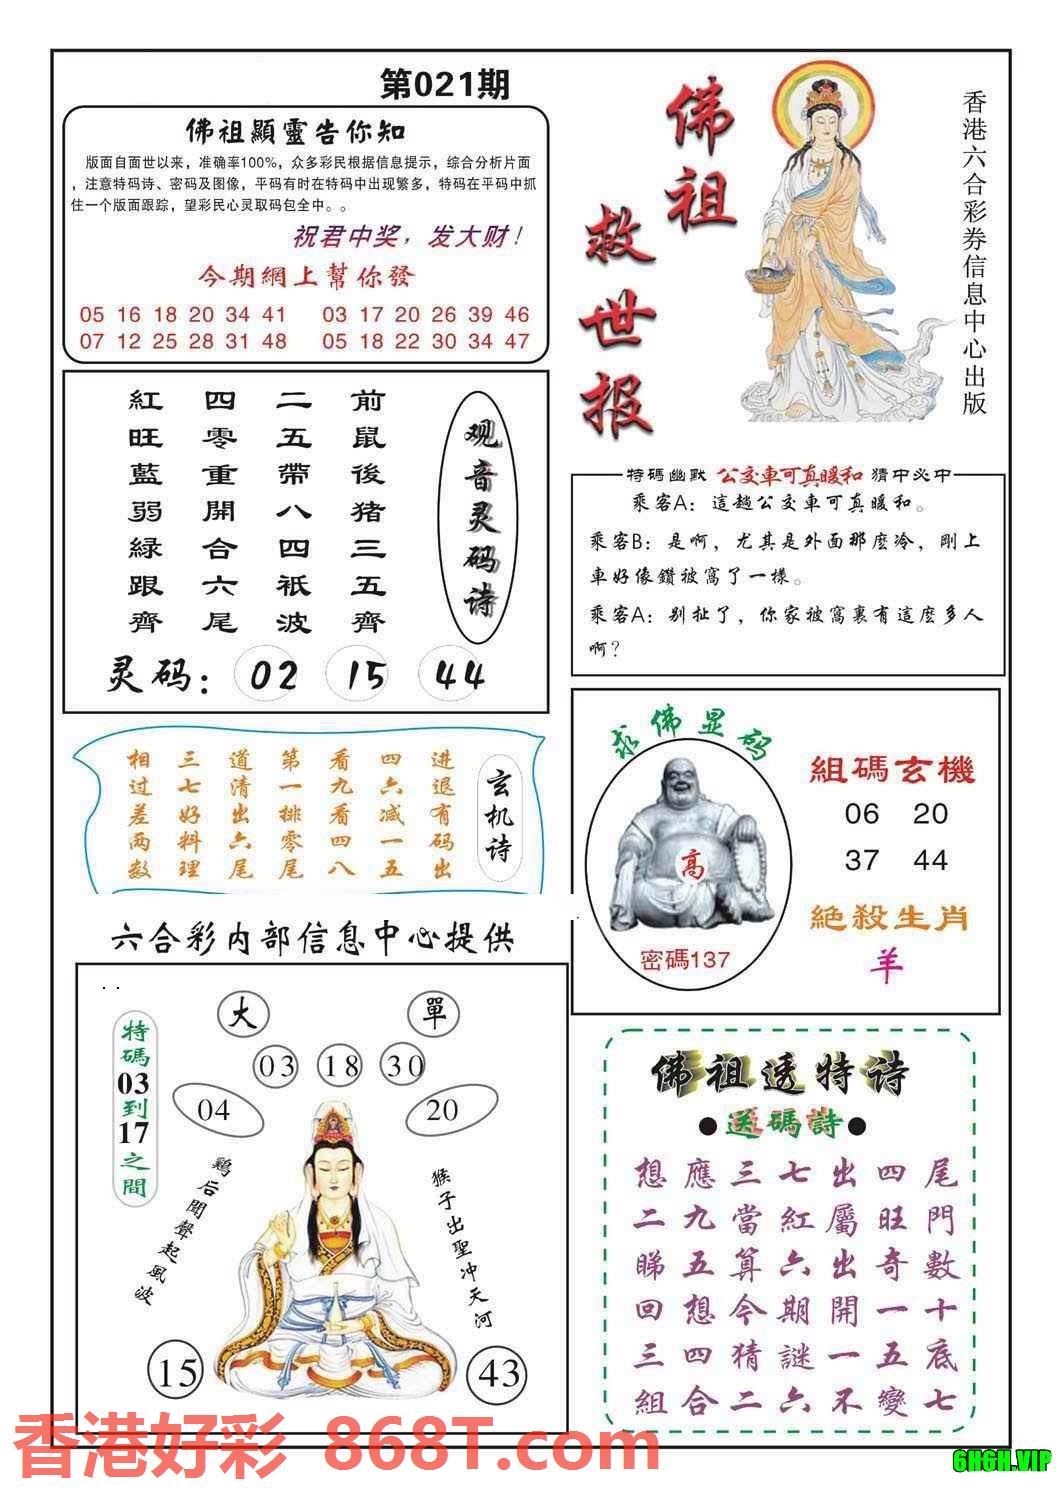 第021期
佛祖顯靈告你知
版面自面世以来，准确率100%，众多彩民根据信息提示，综合分析片面
，注意特码诗、密码及图像，平码有时在特码中出现繁多，特码在平码中抓
住一个版面跟踪，望彩民心灵取码包全中。。
祝君中奖，发大财！
今期網上幫你發
05 16 18 20 34 41 03 17 20 26 39 46
07 12 25 28 31 48 05 18 22 30 34 47
佛祖
救世报
香港六合彩券信息中心出版
观音灵码诗
前鼠後猪三五齊
二五帶八四祇波
四零重開合六尾
紅旺藍弱緑跟齊
灵码：02 15 44
特碼幽默 公交車可真暖和 猜中必中
乘客A：這趟公交車可真暖和。
乘客B：是啊，尤其是外面那麽冷，剛上
車好像鑽被窩了一樣。
乘客A：别扯了，你家被窩裏有這麽多人
啊？
玄机诗
进退有码出
四六减一五
看九看四八
第一排零尾
道清出六尾
三七好料理
相过差两数
求佛显码
高
密碼137
組碼玄機
06 20
37 44
絶殺生肖
羊
六合彩内部信息中心提供
大 單
03 18 30
04 20
特碼03到17之間
鷄后聞聲起風波
猴子出聖冲天河
15 43
佛祖透特诗
●送碼詩●
想應三七出四尾
二九當紅屬旺門
睇五算六出奇數
回想今期開一十
三四猜謎一五底
組合二六不變七
香港好彩 868T.com
6H6H.VIP